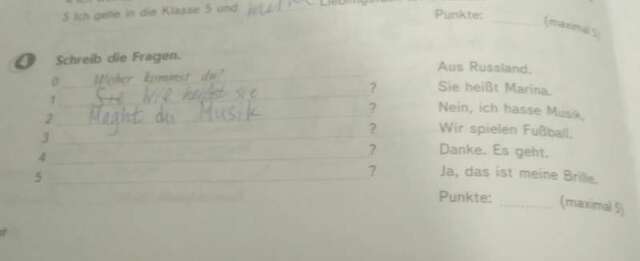 5 Ich gehe in die Klasse 5 und
Punkte: ______ (maximal 5)
4 Schreib die Fragen.
0 Woher kommst du? Aus Russland.
1 Sie Wie heißt sie ? Sie heißt Marina.
2 Maght du Musik ? Nein, ich hasse Musik.
3 ? Wir spielen Fußball.
4 ? Danke. Es geht.
5 ? Ja, das ist meine Brille.
Punkte: ______ (maximal 5)